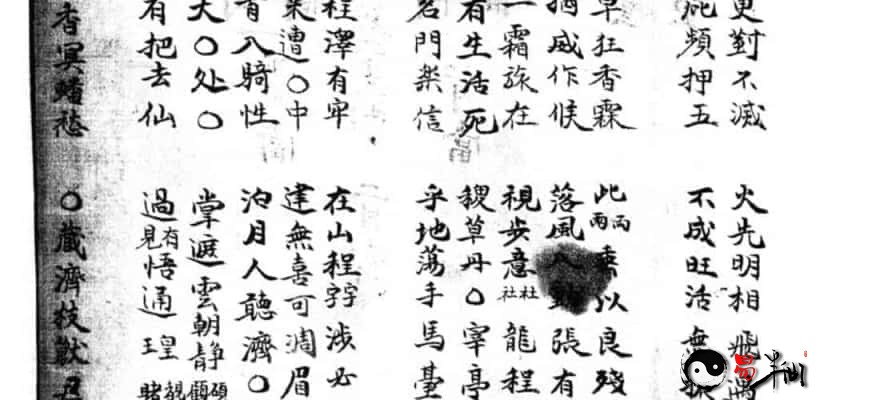 更對不滅
疵頻押五
草狂香霖
捎威作候
一霜旅在
有生活死
名門楽信
程澤有牢
来遭〇中
首入騎性
大〇处〇
有把去仙
香冥
火先明相 飛
不成旺活 無
此兩雨 乘以良殘
落風 張有
視步意社杜龍程
稷草丹〇宰亭
乎地蕩手馬臺
在山程字涉必
逹無喜可凋眉
泊月人聽濟〇
掌遮雲朝靜
過見有悟通 皇
〇藏濟枝獻丑
易半仙